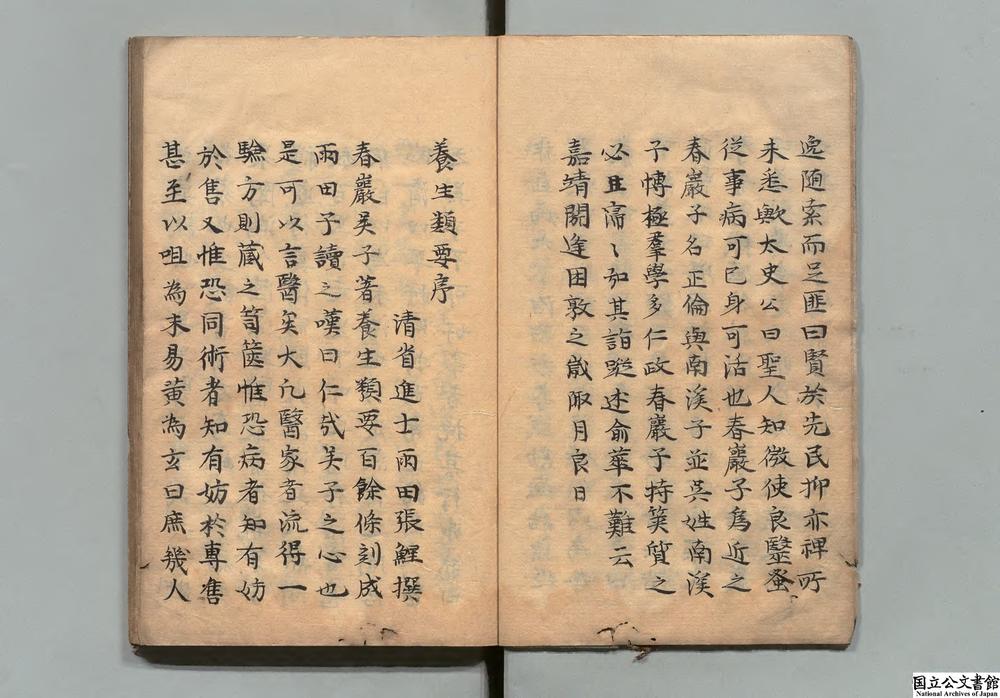 逸随索而足匪曰賢於先民抑亦裨所
未悉歟太史公曰聖人知微使良醫蚤
從事病可已身可活也春巖子爲近之
春巖子名正倫與南溪子並吳姓南溪
子愽極羣學多仁政春巖子持筴質之
必且霈〻和其詣蹤述俞華不難云
嘉靖閼逢困敦之歲陬月良日
養生類要序
清省進士兩田張鯉撰
春巖吳子著養生類要百餘條刻成
兩田子讀之嘆曰仁哉吳子之心也
是可以言醫矣大凢醫家者流得一
驗方則藏之笥篋惟恐病者知有妨
於售又惟恐同術者知有妨於專售
甚至以咀為末易黄為玄曰庶幾人
国立公文書館
National Archives of Japan